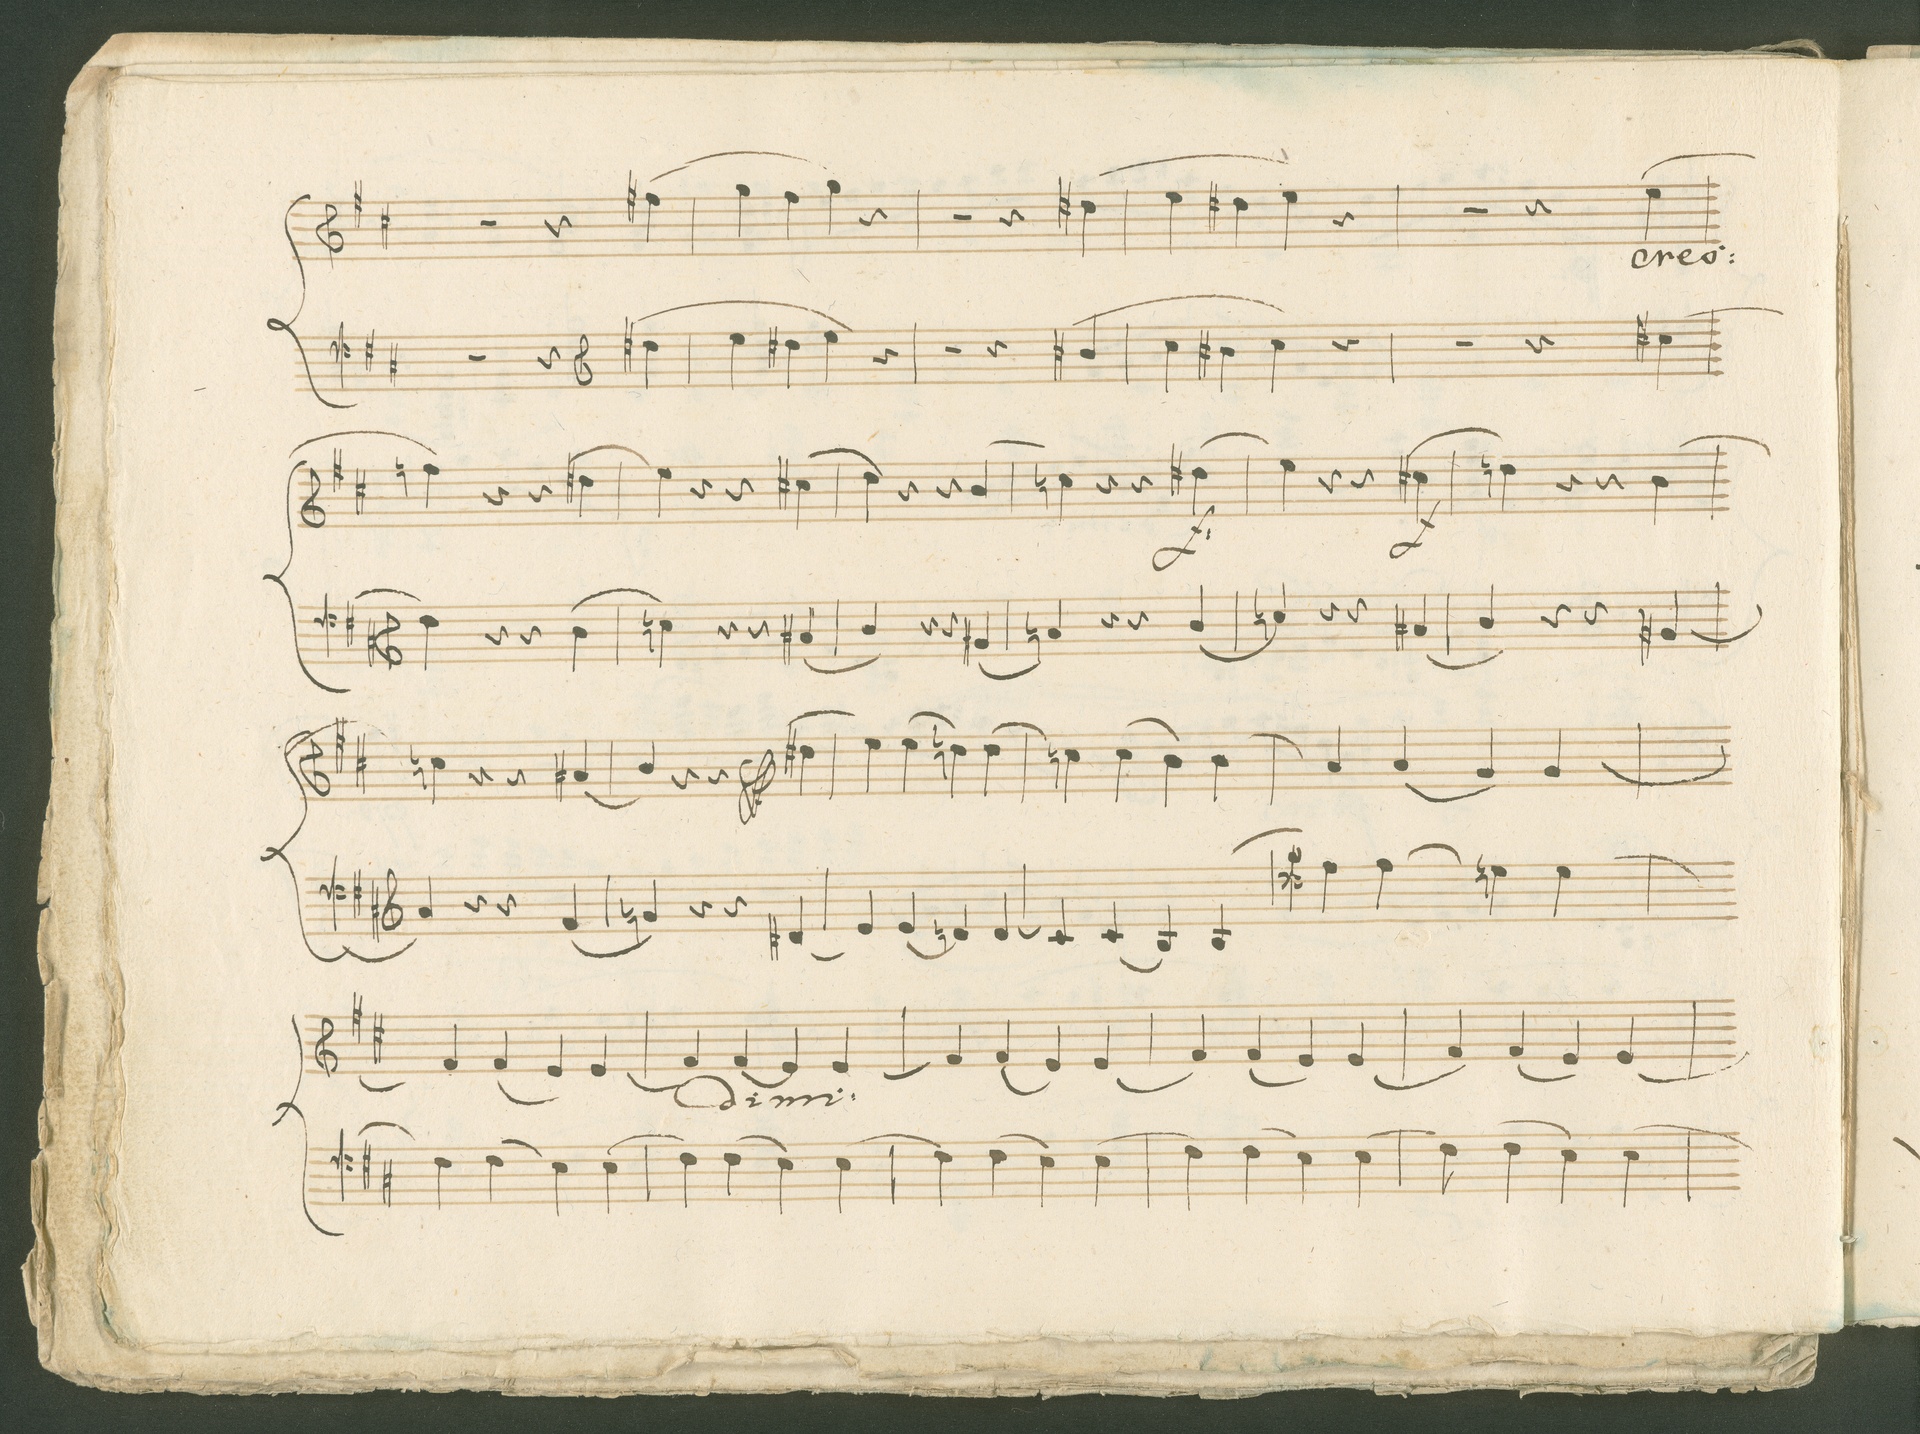 cres:
f: f
Dimi: